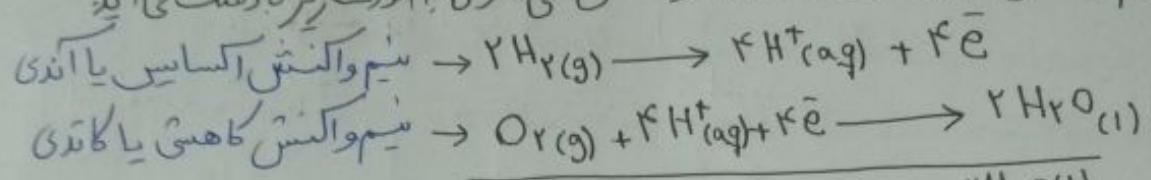 نیم واکنش اکسایس یا آندی → ۲H۲(g) ⟶ ۴H⁺(aq) + ۴ē
نیم واکنش کاهشی یا کاتدی → O۲(g) + ۴H⁺(aq) + ۴ē ⟶ ۲H۲O(l)